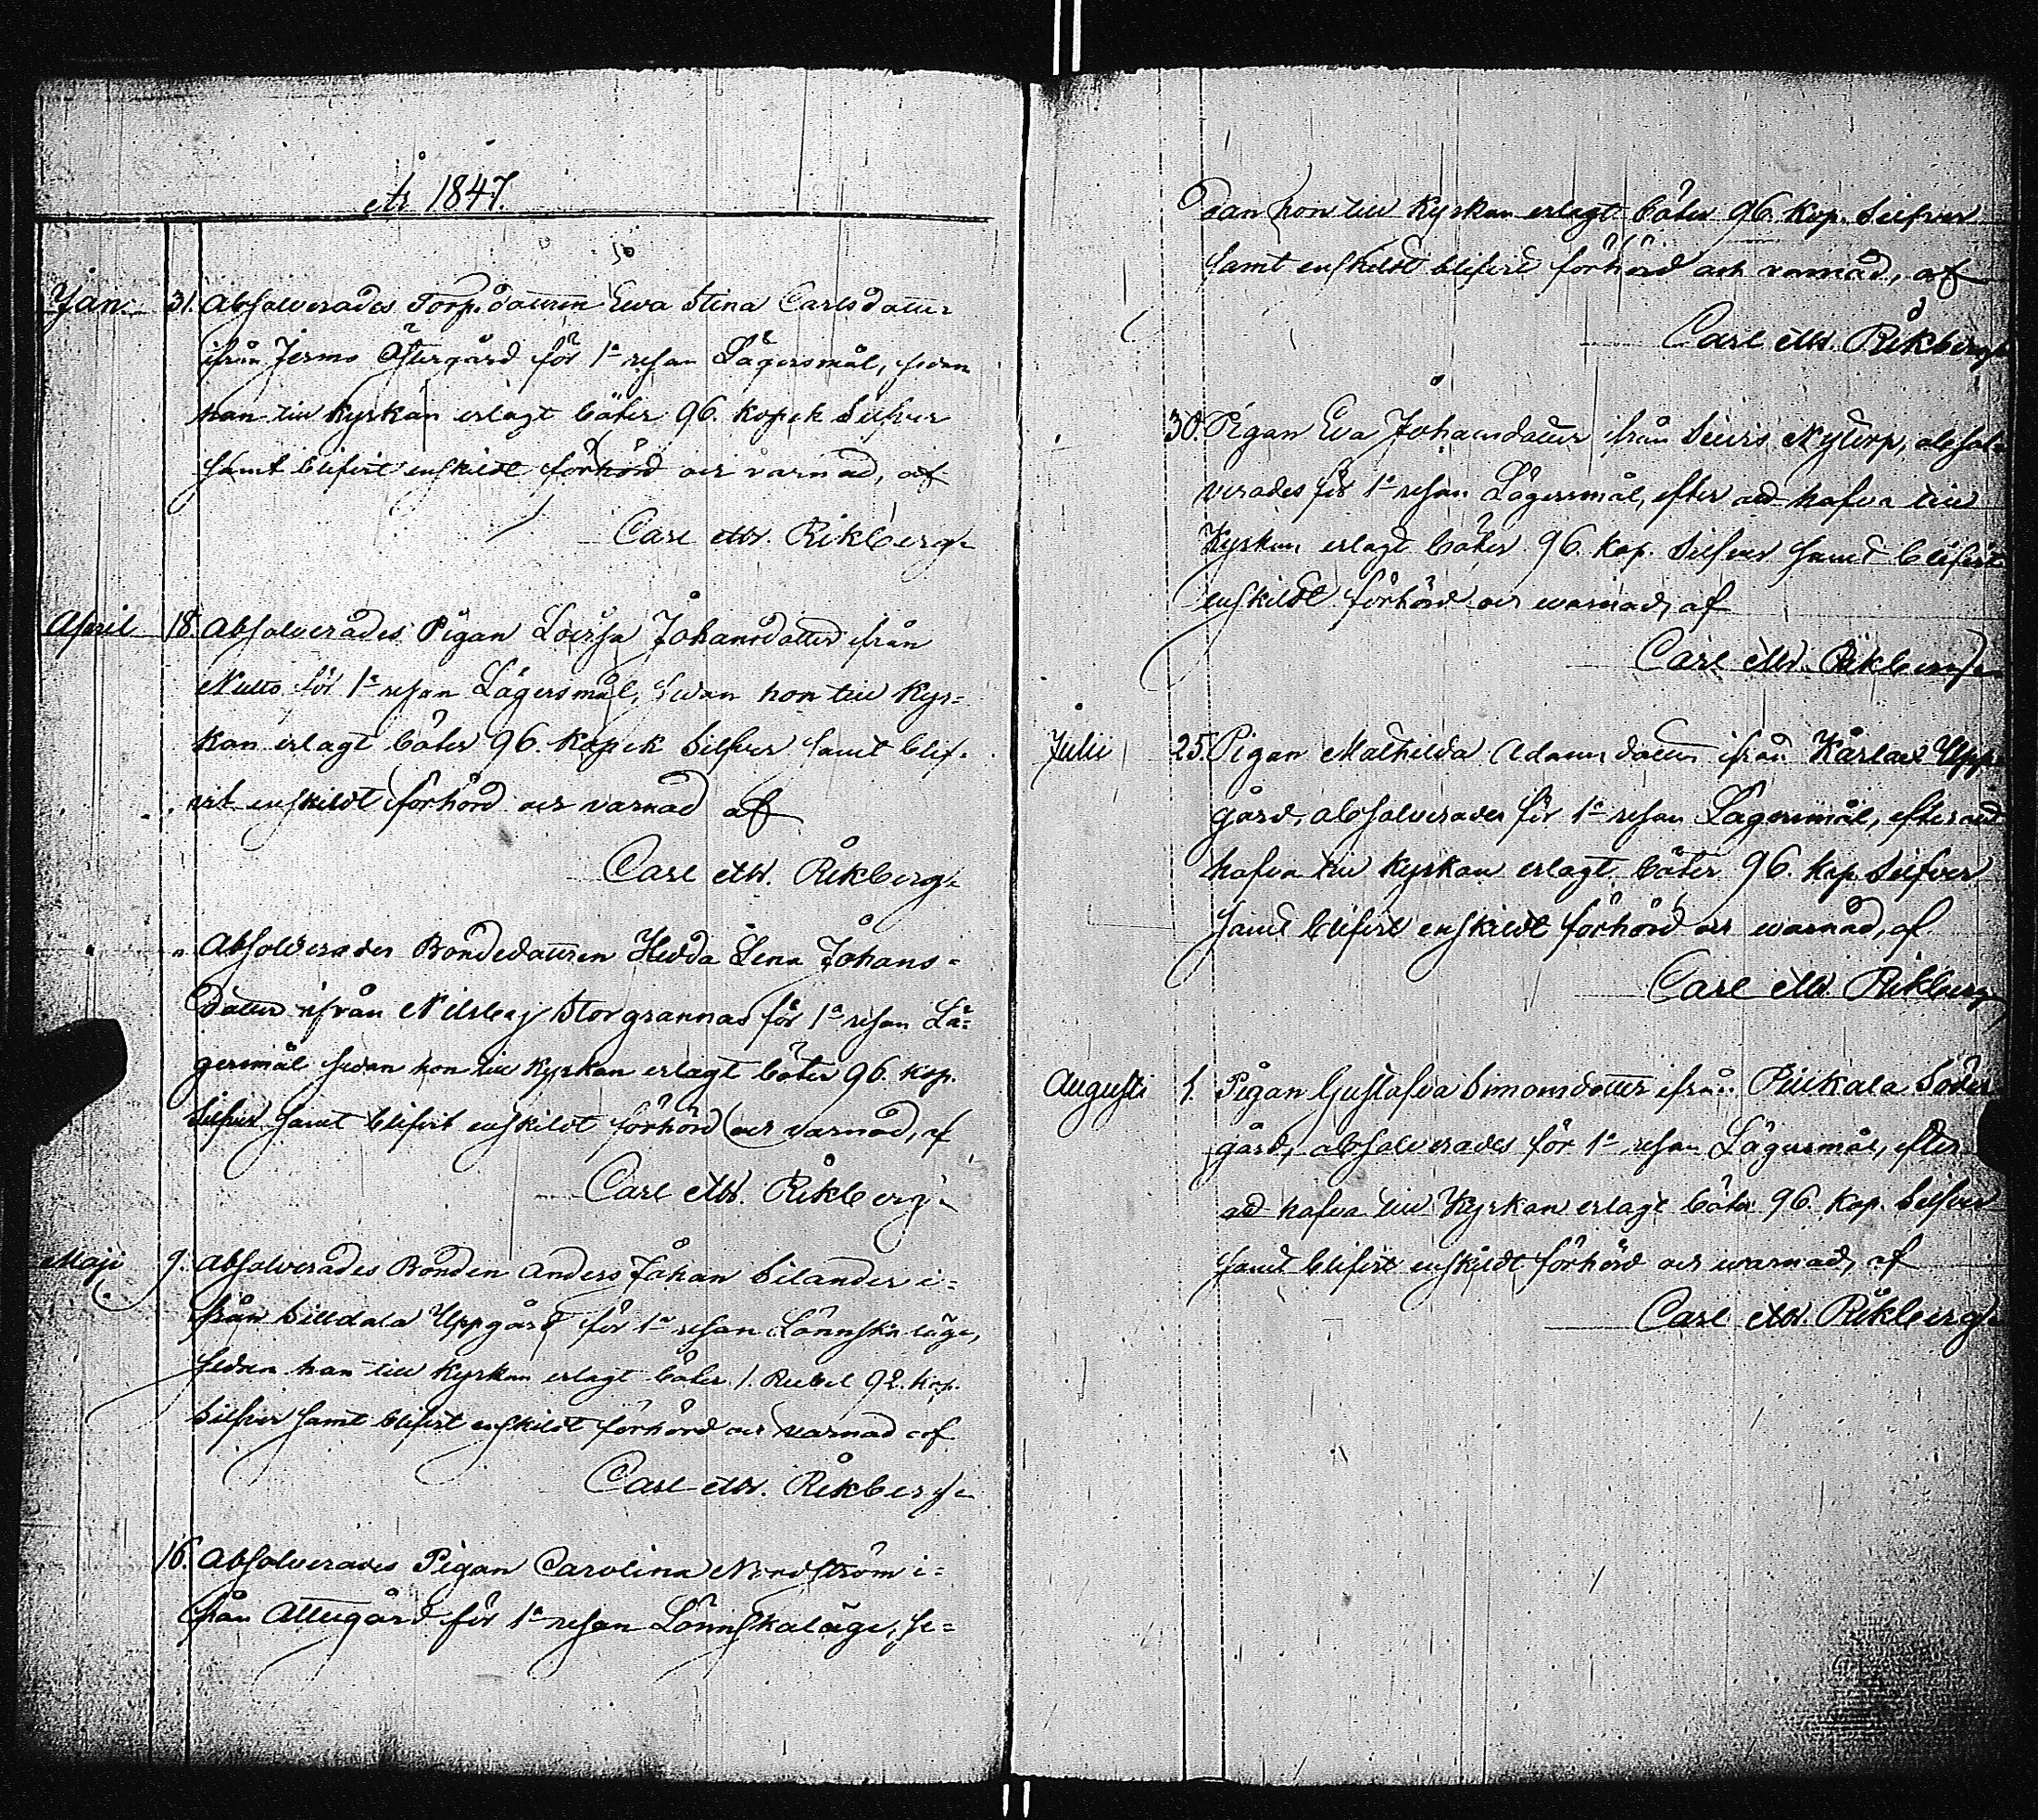 År 1847.
Jan. 31. Absolverades Torp.dottren Ewa Stina Carlsdotter
ifrån Jerms Östergård för 1ª resan Lägersmål, sedan
hon till Kyrkan erlagt böter 96. Kopek Silfver
samt blifvit enskildt förhörd och varnad, af
Carl Mss. Rikberg.
April 18. Absolverades Pigan Lovisa Johansdotter ifrån
för 1ª resan Lägersmål, sedan hon till Kyr-
kan erlagt böter 96. Kopek Silfver samt blif-
vit enskildt förhörd och varnad af
Carl Mss. Rikberg.
" " Absolverades Bondedottren Hedda Lena Johans-
dotter ifrån Nilsby Storgrannas för 1ª resan Lä-
gersmål sedan hon till Kyrkan erlagt böter 96. Kop.
Silfver samt blifvit enskildt förhörd och varnad, af
Carl Mss. Rikberg.
Maji 9. Absolverades Bonden Anders Johan Silander i-
från Silldala Uppgård för 1ª resan Lönnskaläge,
sedan han till Kyrkan erlagt böter 1. Rubel 92. Kop.
Silfver samt blifvit enskildt förhörd och varnad af
Carl Mss. Rikberg.
16. Absolverades Pigan Carolina Nordström i-
från Attugård för 1ª resan Lönnskaläge, se-
dan hon till Kyrkan erlagt böter 96. Kop. Silfver
samt enskildt blifvit förhörd och varnad, af
Carl Mss. Rikberg.
" 30. Pigan Eva Johansdotter ifrån Nytorp, absol-
verades för 1ª resan Lägersmål, efter att hafva till
Kyrkan erlagt böter 96. Kop. Silfver samt blifvit
enskildt förhörd och warnad, af
Carl Mss. Rikberg.
Julii 25. Pigan Mathilda Adamsdotter ifrån Upp-
gård, absolverades för 1ª resan Lägersmål, efter att
hafva till Kyrkan erlagt böter 96. Kop. Silfver
samt blifvit enskildt förhörd och warnad, af
Carl Mss. Rikberg
Augusti 1. Pigan Gustafva Simonsdotter ifrån Söder-
gård, absolverades för 1ª resan Lägersmål, efter
att hafva till Kyrkan erlagt böter 96. Kop. Silfver
samt blifvit enskildt förhörd och warnad, af
Carl Mss. Rikberg.